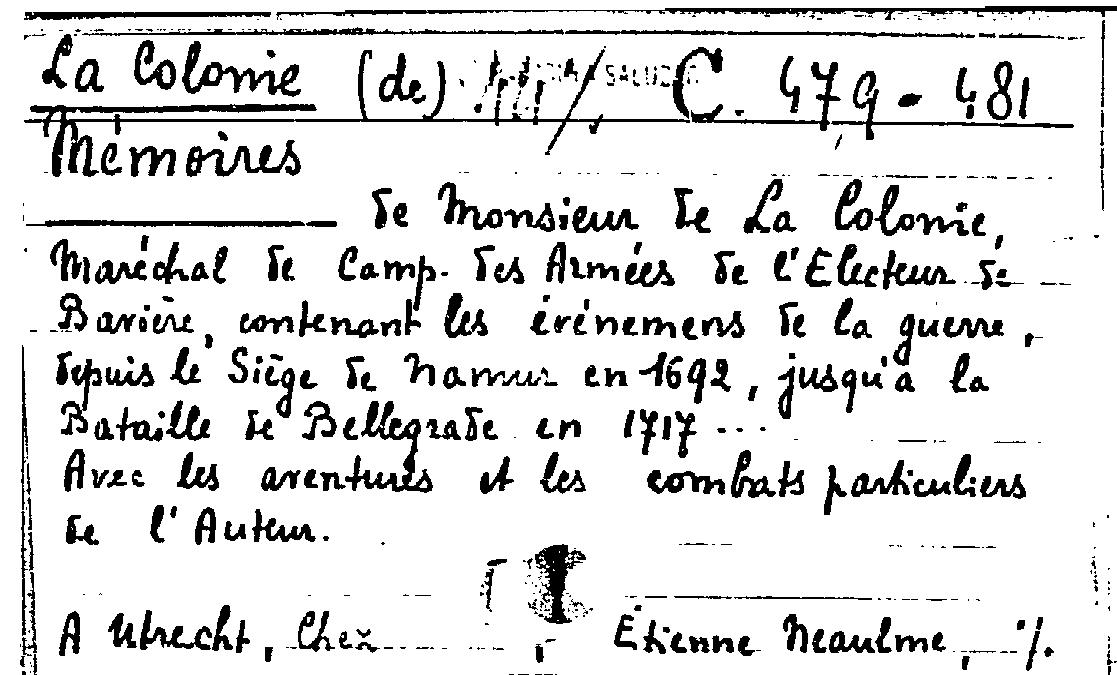 La Colonie (de) C. 479-481
Mémoires
de Monsieur de La Colonie,
Maréchal de Camp. des Armées de l'Electeur de
Bavière, contenant les événemens de la guerre,
depuis le Siège de Namur en 1692, jusqu'à la
Bataille de Bellegrade en 1717...
Avec les aventures et les combats particuliers
de l'Auteur.
A Utrecht, Chez Étienne Neaulme, ./.